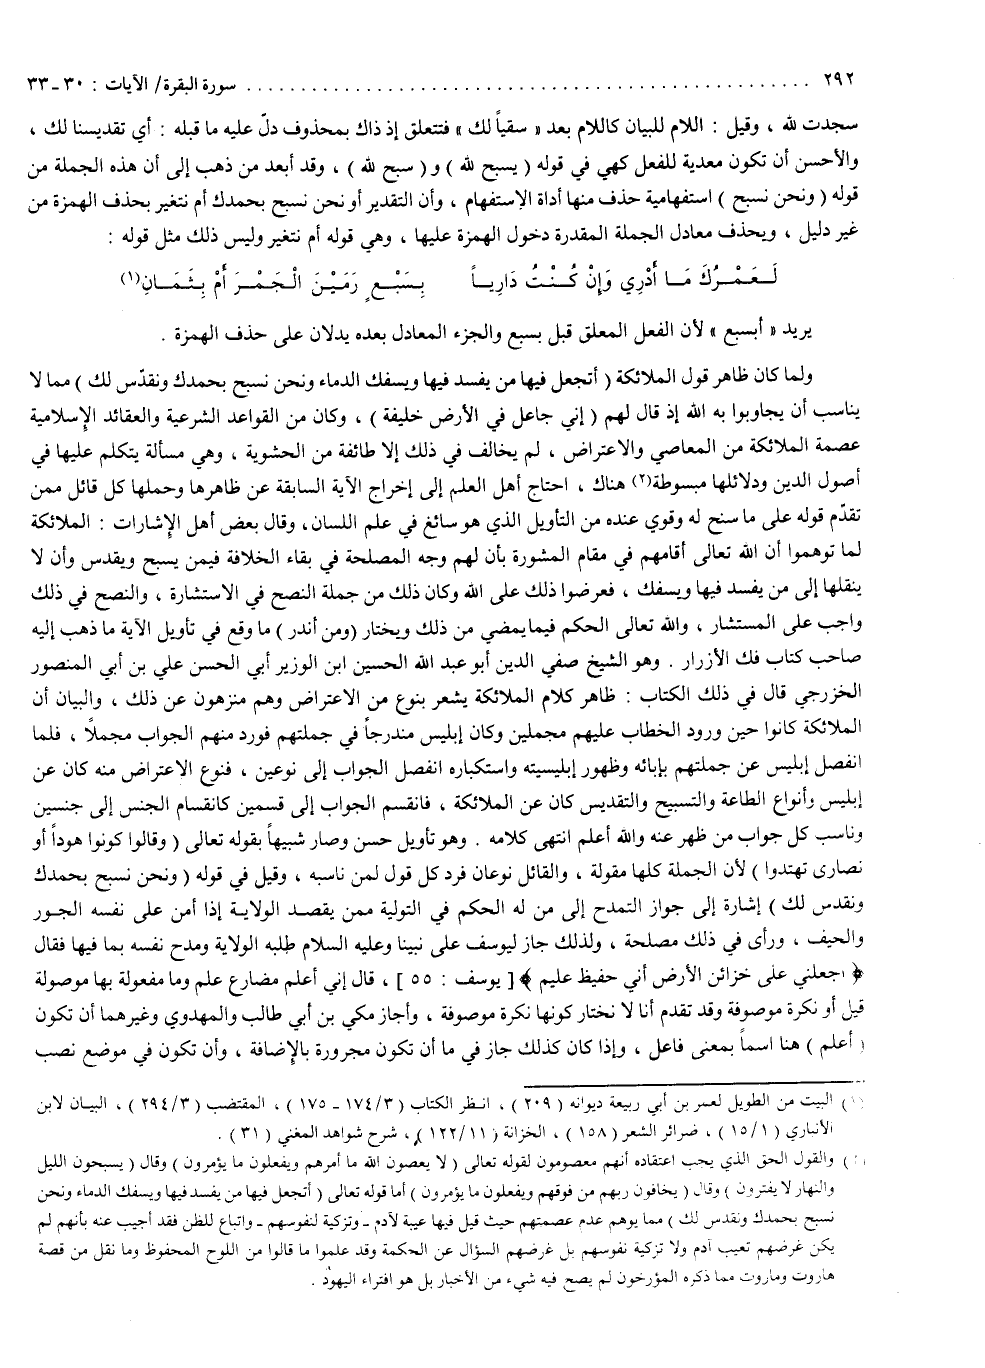 ٢٩٢ ........................................................ سورة البقرة/ الآيات : ٣٠ ـ ٣٣
سجدت لله ، وقيل : اللام للبيان كاللام بعد « سقياً لك » فتتعلق إذ ذاك بمحذوف دلّ عليه ما قبله : أي تقديسنا لك ،
والأحسن أن تكون معدية للفعل كهي في قوله ( يسبح لله ) و ( سبح لله ) ، وقد أبعد من ذهب إلى أن هذه الجملة من
قوله ( ونحن نسبح ) استفهامية حذف منها أداة الإستفهام ، وأن التقدير أو نحن نسبح بحمدك أم نتغير بحذف الهمزة من
غير دليل ، ويحذف معادل الجملة المقدرة دخول الهمزة عليها ، وهي قوله أم نتغير وليس ذلك مثل قوله :
لَعَمْرُكَ مَا أَدْرِي وَإِنْ كُنْتُ دَارِياً بِسَبْعٍ رَمَيْنَ الْجَمْرَ أَمْ بِثَمَانِ(١)
يريد « أبسبع » لأن الفعل المعلق قبل بسبع والجزء المعادل بعده يدلان على حذف الهمزة .
ولما كان ظاهر قول الملائكة ( أتجعل فيها من يفسد فيها ويسفك الدماء ونحن نسبح بحمدك ونقدّس لك ) مما لا
يناسب أن يجاوبوا به الله إذ قال لهم ( إني جاعل في الأرض خليفة ) ، وكان من القواعد الشرعية والعقائد الإِسلامية
عصمة الملائكة من المعاصي والاعتراض ، لم يخالف في ذلك إلا طائفة من الحشوية ، وهي مسألة يتكلم عليها في
أصول الدين ودلائلها مبسوطة(٢) هناك ، احتاج أهل العلم إلى إخراج الآية السابقة عن ظاهرها وحملها كل قائل ممن
تقدّم قوله على ما سنح له وقوي عنده من التأويل الذي هو سائغ في علم اللسان، وقال بعض أهل الإِشارات : الملائكة
لما توهموا أن الله تعالى أقامهم في مقام المشورة بأن لهم وجه المصلحة في بقاء الخلافة فيمن يسبح ويقدس وأن لا
ينقلها إلى من يفسد فيها ويسفك ، فعرضوا ذلك على الله وكان ذلك من جملة النصح في الاستشارة ، والنصح في ذلك
واجب على المستشار ، والله تعالى الحكم فيما يمضي من ذلك ويختار (ومن أندر ) ما وقع في تأويل الآية ما ذهب إليه
صاحب كتاب فك الأزرار . وهو الشيخ صفي الدين أبو عبد الله الحسين ابن الوزير أبي الحسن علي بن أبي المنصور
الخزرجي قال في ذلك الكتاب : ظاهر كلام الملائكة يشعر بنوع من الاعتراض وهم منزهون عن ذلك ، والبيان أن
الملائكة كانوا حين ورود الخطاب عليهم مجملين وكان إبليس مندرجاً في جملتهم فورد منهم الجواب مجملاً ، فلما
انفصل إبليس عن جملتهم بإبائه وظهور إبليسيته واستكباره انفصل الجواب إلى نوعين ، فنوع الاعتراض منه كان عن
إبليس وأنواع الطاعة والتسبيح والتقديس كان عن الملائكة ، فانقسم الجواب إلى قسمين كانقسام الجنس إلى جنسين
وناسب كل جواب من ظهر عنه والله أعلم انتهى كلامه . وهو تأويل حسن وصار شبيهاً بقوله تعالى ( وقالوا كونوا هوداً أو
نصارى تهتدوا ) لأن الجملة كلها مقولة ، والقائل نوعان فرد كل قول لمن ناسبه ، وقيل في قوله ( ونحن نسبح بحمدك
ونقدس لك ) إشارة إلى جواز التمدح إلى من له الحكم في التولية ممن يقصد الولاية إذا أمن على نفسه الجور
والحيف ، ورأى في ذلك مصلحة ، ولذلك جاز ليوسف على نبينا وعليه السلام طلبه الولاية ومدح نفسه بما فيها فقال
﴿ اجعلني على خزائن الأرض أني حفيظ عليم ﴾ [ يوسف : ٥٥ ] ، قال إني أعلم مضارع علم وما مفعولة بها موصولة
قيل أو نكرة موصوفة وقد تقدم أنا لا نختار كونها نكرة موصوفة ، وأجاز مكي بن أبي طالب والمهدوي وغيرهما أن تكون
( أعلم ) هنا اسماً بمعنى فاعل ، وإذا كان كذلك جاز في ما أن تكون مجرورة بالإِضافة ، وأن تكون في موضع نصب
(١) البيت من الطويل لعمر بن أبي ربيعة ديوانه ( ٢٠٩ ) ، انظر الكتاب ( ١٧٤/٣ - ١٧٥ ) ، المقتضب ( ٢٩٤/٣ ) ، البيان لابن
الأنباري ( ١٥/١ ) ، ضرائر الشعر ( ١٥٨ ) ، الخزانة ( ١٢٢/١١ ) ، شرح شواهد المغني ( ٣١ ) .
(٢) والقول الحق الذي يجب اعتقاده أنهم معصومون لقوله تعالى ( لا يعصون الله ما أمرهم ويفعلون ما يؤمرون ) وقال ( يسبحون الليل
والنهار لا يفترون ) وقال ( يخافون ربهم من فوقهم ويفعلون ما يؤمرون ) أما قوله تعالى ( أتجعل فيها من يفسد فيها ويسفك الدماء ونحن
نسبح بحمدك ونقدس لك ) مما يوهم عدم عصمتهم حيث قيل فيها عيبة لآدم ـ وتزكية لنفوسهم ـ واتباع للظن فقد أجيب عنه بأنهم لم
يكن غرضهم تعيب آدم ولا تزكية نفوسهم بل غرضهم السؤال عن الحكمة وقد علموا ما قالوا من اللوح المحفوظ وما نقل من قصة
هاروت وماروت مما ذكره المؤرخون لم يصح فيه شيء من الأخبار بل هو افتراء اليهود .